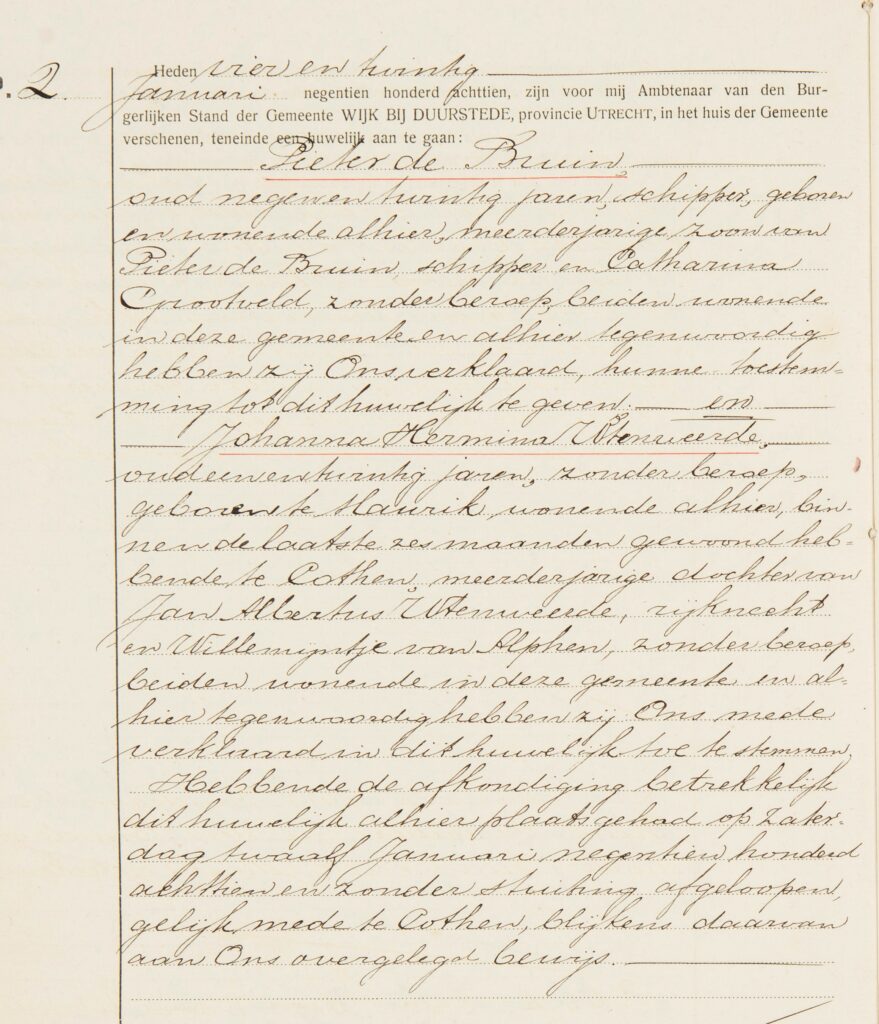 o. 2. Heden vier en twintig
Januari negentien honderd achttien, zijn voor mij Ambtenaar van den Bur-
gerlijken Stand der Gemeente WIJK BIJ DUURSTEDE, provincie UTRECHT, in het huis der Gemeente
verschenen, teneinde een huwelijk aan te gaan:
Pieter de Bruin,
oud negen en twintig jaren, schipper, geboren
en wonende alhier, meerderjarige zoon van
Pieter de Bruin, schipper en Catharina
Grootveld, zonder beroep, beiden wonende
in deze gemeente en alhier tegenwoordig
hebben zij Ons verklaard, hunne toestem=
ming tot dit huwelijk te geven. en
Johanna Hermina Utenweerde,
oud een en twintig jaren, zonder beroep,
geboren te Maurik, wonende alhier, bin-
nen de laatste zes maanden gewoond heb=
bende te Cothen, meerderjarige dochter van
Jan Albertus Utenweerde, rijknecht
en Willemijntje van Alphen, zonder beroep,
beiden wonende in deze gemeente en al=
hier tegenwoordig hebben zij Ons mede
verklaard in dit huwelijk toe te stemmen.
Hebbende de afkondiging betrekkelijk
dit huwelijk alhier plaats gehad op Zater-
dag twaalf Januari negentien honderd
achttien en zonder stuiting afgeloopen,
gelijk mede te Cothen, blijkens daarvan
aan Ons overgelegd bewijs.